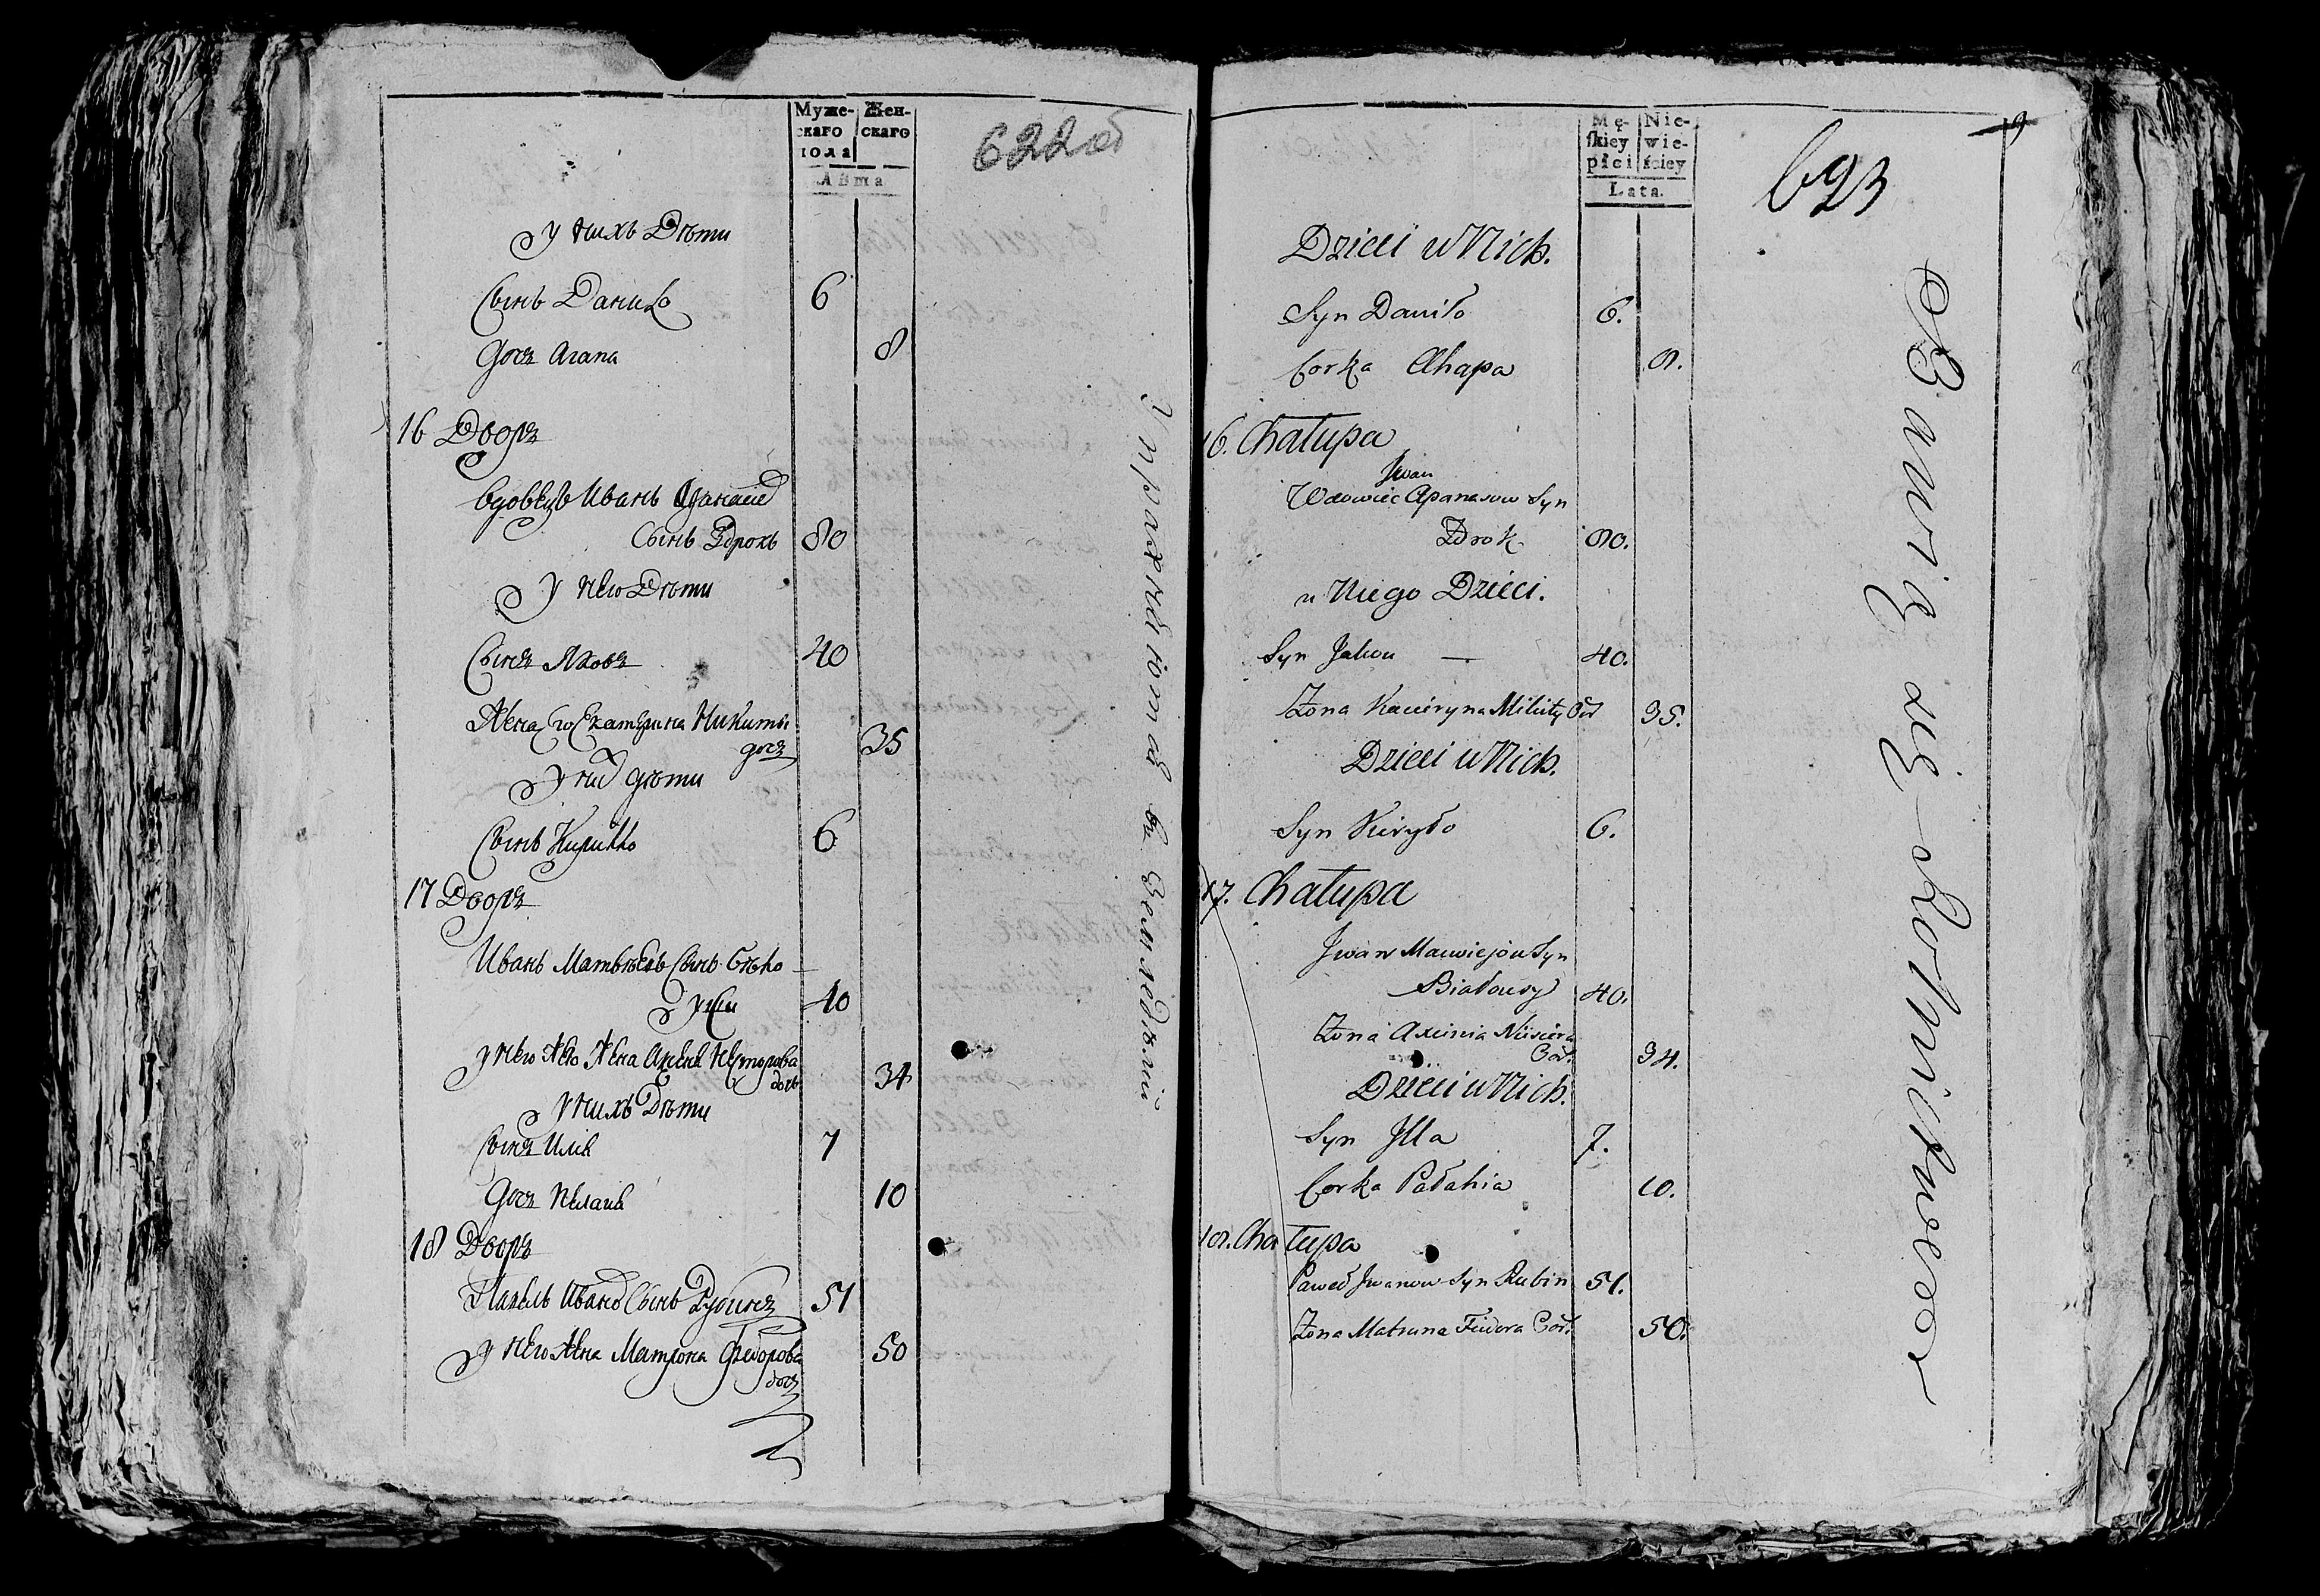 Муже-
скаго
пола
Жен-
скаго
Лѣта
622об
У нихъ Дѣти
Сынъ Данило 6
Дочъ Агапа 8
16 Дворъ
Вдовецъ Иванъ
Сынъ Здрокъ 80
У него Дѣти
Сынъ Яковъ 40
Жена его Екатерина Никиты
дочъ 35
У них дѣти
Сынъ Кирилло 6
17 Дворъ
Иванъ Матвѣевъ Сынъ Бѣло
усы 40
У него Жена Нестерова
дочь 34
У нихъ Дѣти
Сынъ Илія 7
Дочъ Пелагія 10
18 Дворъ
Павелъ Ивановъ Сынъ Рубинъ 51
У него Жена Матрона Федорова
дочъ 50
Mę-
skiey
płci
Nie-
wie-
ściey
Lata.
693
Dzieci u Nich.
Syn Daniło 6.
Corka Ahapa 8.
16. Chałupa
Jwan
Wdowiec Apanasow Syn
Zdrok 80.
u Niego Dzieci.
Syn Jakou — 40.
Żona Kaciryna Mikity Cór 35.
Dzieci u Nich.
Syn Kiryło 6.
17. Chałupa
Jwan Maciejow Syn
Białousy 40.
Żona Axinia Niscera
Cor. 34.
Dzieci u Nich.
Syn Jlla 7.
Corka Pałahia 10.
18. Chałupa
Paweł Jwanow Syn Rubin 51.
Żona Matruna Fiudora Cór. 50.